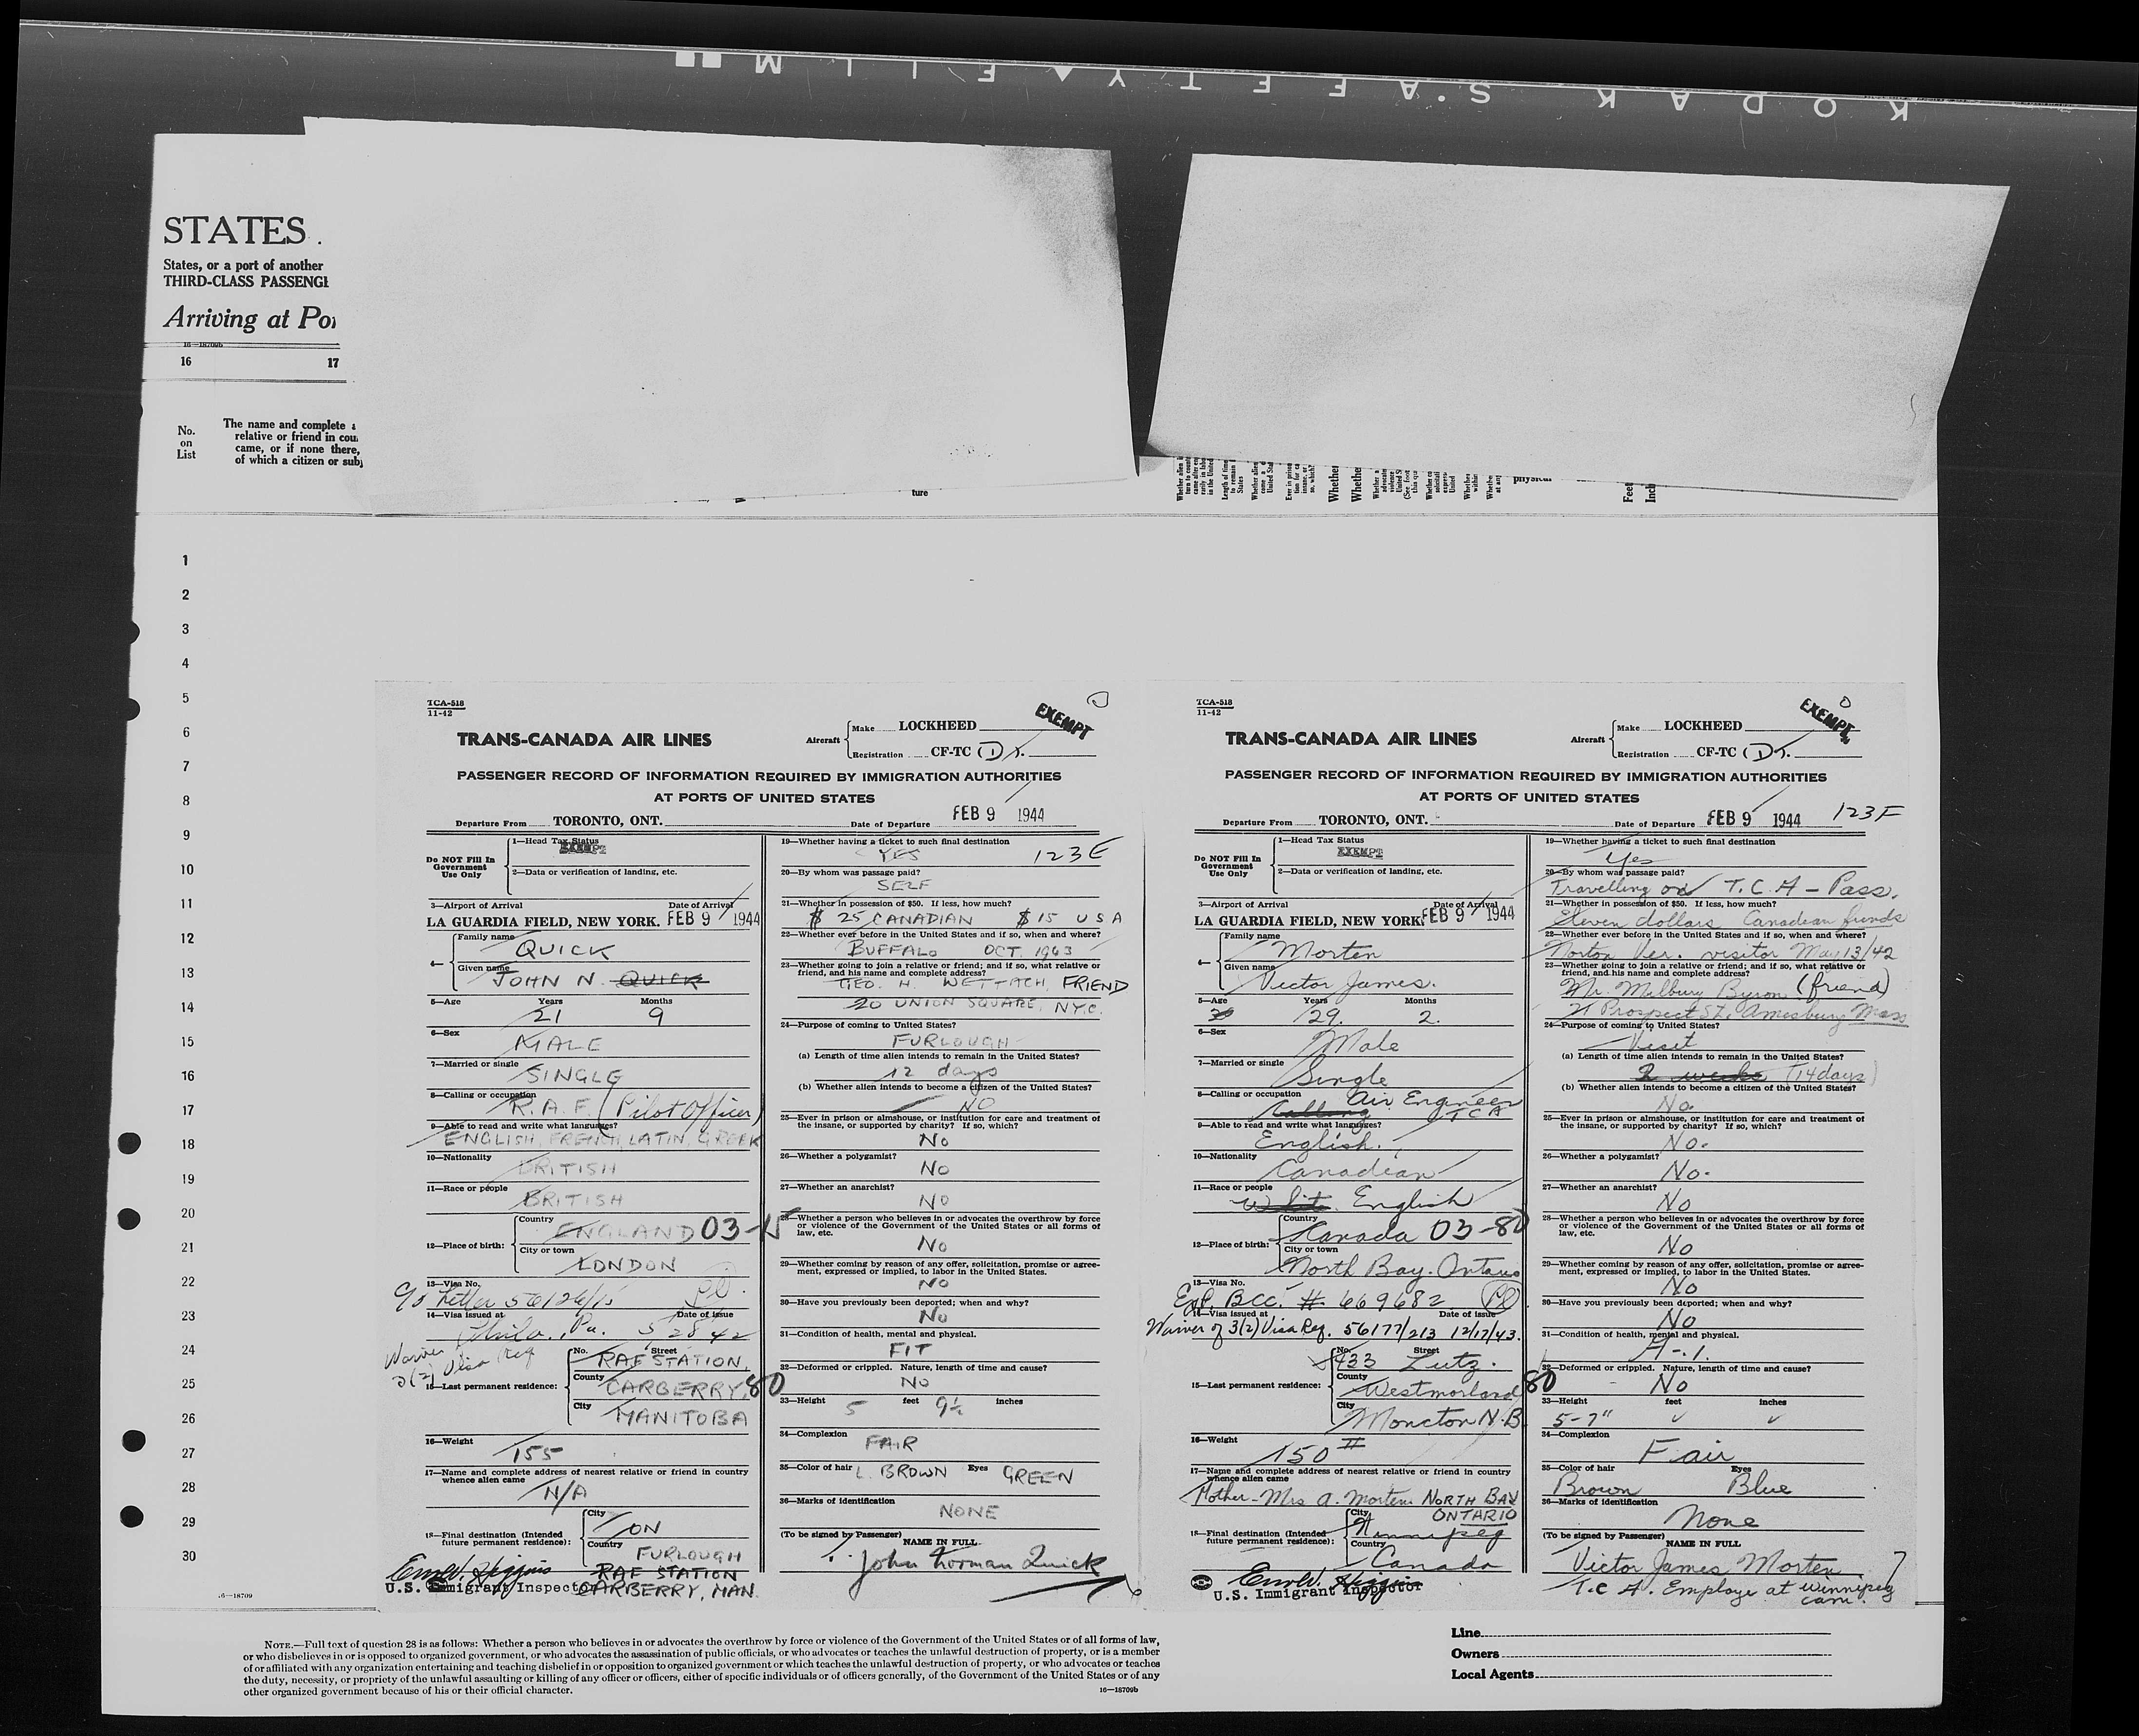 KODAK SAFETY FILM
STATES.
States, or a port of another
THIRD-CLASS PASSENGE
Arriving at Por
16—18709b
16 17
No. on List
The name and complete a
relative or friend in cou
came, or if none there,
of which a citizen or subj
ture
Whether
Whether
physical
Feet
Inch
1
2
3
4
5
6
7
8
9
10
11
12
13
14
15
16
17
18
19
20
21
22
23
24
25
26
27
28
29
30
16—18709
TCA-518
11-42
EXEMPT
TRANS-CANADA AIR LINES
Aircraft
Make LOCKHEED
Registration CF-TC (D) T.
PASSENGER RECORD OF INFORMATION REQUIRED BY IMMIGRATION AUTHORITIES
AT PORTS OF UNITED STATES
Departure From TORONTO, ONT. Date of Departure FEB 9 1944
Do NOT Fill In Government Use Only
1—Head Tax Status
EXEMPT
2—Data or verification of landing, etc.
3—Airport of Arrival Date of Arrival
LA GUARDIA FIELD, NEW YORK. FEB 9 1944
4—
Family name
QUICK
Given name
JOHN N. QUICK
5—Age Years Months
21 9
6—Sex
MALE
7—Married or single
SINGLE
8—Calling or occupation
R.A.F. (Pilot Officer)
9—Able to read and write what languages?
ENGLISH, FRENCH, LATIN, GREEK
10—Nationality
BRITISH
11—Race or people
BRITISH
12—Place of birth:
Country
ENGLAND 03-15
City or town
LONDON
13—Visa No.
Letter 56126/15
14—Visa issued at Date of issue
Phila., Pa. 5 28 42
Waiver
3(2) Visa Req
15—Last permanent residence:
No. Street
RAF STATION,
County
CARBERRY, 80
City
MANITOBA
16—Weight
155
17—Name and complete address of nearest relative or friend in country
whence alien came
N/A
18—Final destination (Intended
future permanent residence):
City
ON
Country
FURLOUGH
RAF STATION
CARBERRY, MAN.
U.S. Immigrant Inspector
19—Whether having a ticket to such final destination
YES 123E
20—By whom was passage paid?
SELF
21—Whether in possession of $50. If less, how much?
$ 25 CANADIAN $ 15 USA
22—Whether ever before in the United States and if so, when and where?
BUFFALO OCT. 1943
23—Whether going to join a relative or friend; and if so, what relative or
friend, and his name and complete address?
GEO. H. WETTACH, FRIEND
20 UNION SQUARE, NYC.
24—Purpose of coming to United States?
FURLOUGH
(a) Length of time alien intends to remain in the United States?
12 days
(b) Whether alien intends to become a citizen of the United States?
NO
25—Ever in prison or almshouse, or institution for care and treatment of
the insane, or supported by charity? If so, which?
No
26—Whether a polygamist?
No
27—Whether an anarchist?
NO
28—Whether a person who believes in or advocates the overthrow by force
or violence of the Government of the United States or all forms of
law, etc.
No
29—Whether coming by reason of any offer, solicitation, promise or agree-
ment, expressed or implied, to labor in the United States.
NO
30—Have you previously been deported; when and why?
No
31—Condition of health, mental and physical.
FIT
32—Deformed or crippled. Nature, length of time and cause?
No
33—Height 5 feet 9½ inches
34—Complexion
FAIR
35—Color of hair L. BROWN Eyes GREEN
36—Marks of identification
NONE
(To be signed by Passenger)
NAME IN FULL
John Norman Quick
TCA-518
11-42
EXEMPT
TRANS-CANADA AIR LINES
Aircraft
Make LOCKHEED
Registration CF-TC (D) T.
PASSENGER RECORD OF INFORMATION REQUIRED BY IMMIGRATION AUTHORITIES
AT PORTS OF UNITED STATES
Departure From TORONTO, ONT. Date of Departure FEB 9 1944 123F
Do NOT Fill In Government Use Only
1—Head Tax Status
EXEMPT
2—Data or verification of landing, etc.
3—Airport of Arrival Date of Arrival
LA GUARDIA FIELD, NEW YORK. FEB 9 1944
4—
Family name
Morten
Given name
Victor James.
5—Age Years Months
29. 2.
6—Sex
Male
7—Married or single
Single
8—Calling or occupation
Air Engineer
TCA
9—Able to read and write what languages?
English.
10—Nationality
Canadian
11—Race or people
White English
12—Place of birth:
Country
Canada 03-80
City or town
North Bay. Ontario
13—Visa No.
Exp. BCC. # 669682
14—Visa issued at Date of issue
Waiver of 3(2) Visa Req. 56177/213 12/17/43.
15—Last permanent residence:
No. Street
433 Lutz.
County
Westmorland 80
City
Moncton N.B.
16—Weight
150 #
17—Name and complete address of nearest relative or friend in country
whence alien came
Mother-Mrs A. Morten NORTH BAY
ONTARIO
18—Final destination (Intended
future permanent residence):
City
Winnipeg
Country
Canada
U.S. Immigrant Inspector
19—Whether having a ticket to such final destination
Yes
20—By whom was passage paid?
Travelling on T.C.A - Pass.
21—Whether in possession of $50. If less, how much?
Eleven dollars Canadian funds
22—Whether ever before in the United States and if so, when and where?
Norton Ver. visitor May 13/42
23—Whether going to join a relative or friend; and if so, what relative or
friend, and his name and complete address?
Mr. Milbury Byron (friend)
21 Prospect St. Amesbury Mass
24—Purpose of coming to United States?
Visit
(a) Length of time alien intends to remain in the United States?
2 weeks (14 days)
(b) Whether alien intends to become a citizen of the United States?
No.
25—Ever in prison or almshouse, or institution for care and treatment of
the insane, or supported by charity? If so, which?
No.
26—Whether a polygamist?
No.
27—Whether an anarchist?
No
28—Whether a person who believes in or advocates the overthrow by force
or violence of the Government of the United States or all forms of
law, etc.
No
29—Whether coming by reason of any offer, solicitation, promise or agree-
ment, expressed or implied, to labor in the United States.
No
30—Have you previously been deported; when and why?
No
31—Condition of health, mental and physical.
A-1.
32—Deformed or crippled. Nature, length of time and cause?
No
33—Height feet inches
5-7"
34—Complexion
Fair
35—Color of hair Eyes
Brown Blue
36—Marks of identification
None
(To be signed by Passenger)
NAME IN FULL
Victor James Morten
T.C.A. Employe at Winnipeg
Can.
NOTE.—Full text of question 28 is as follows: Whether a person who believes in or advocates the overthrow by force or violence of the Government of the United States or of all forms of law,
or who disbelieves in or is opposed to organized government, or who advocates the assassination of public officials, or who advocates or teaches the unlawful destruction of property, or is a member
of or affiliated with any organization entertaining and teaching disbelief in or opposition to organized government or which teaches the unlawful destruction of property, or who advocates or teaches
the duty, necessity, or propriety of the unlawful assaulting or killing of any officer or officers, either of specific individuals or of officers generally, of the Government of the United States or of any
other organized government because of his or their official character.
16—18709b
Line
Owners
Local Agents